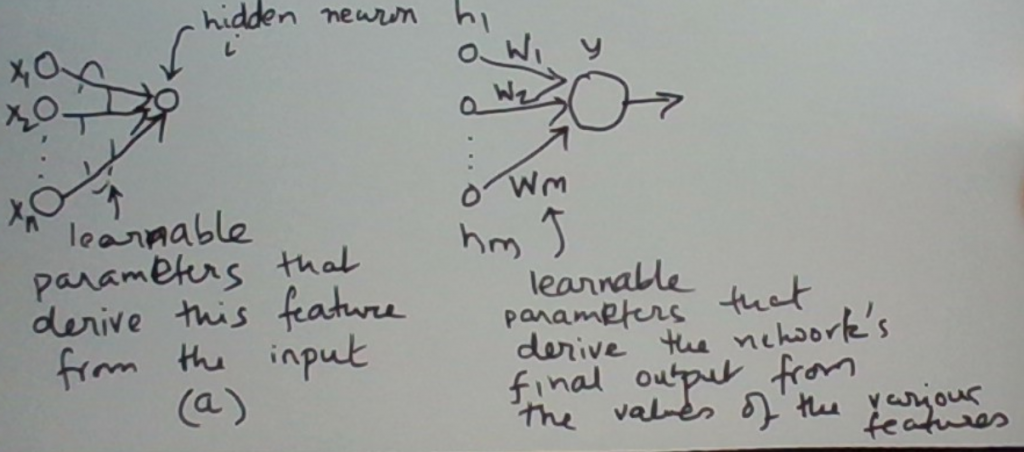 hidden neuron
i
x1
x2
xn
learnable
parameters that
derive this feature
from the input
(a)
h1
W1
y
W2
Wm
hm
learnable
parameters that
derive the network's
final output from
the values of the various
features